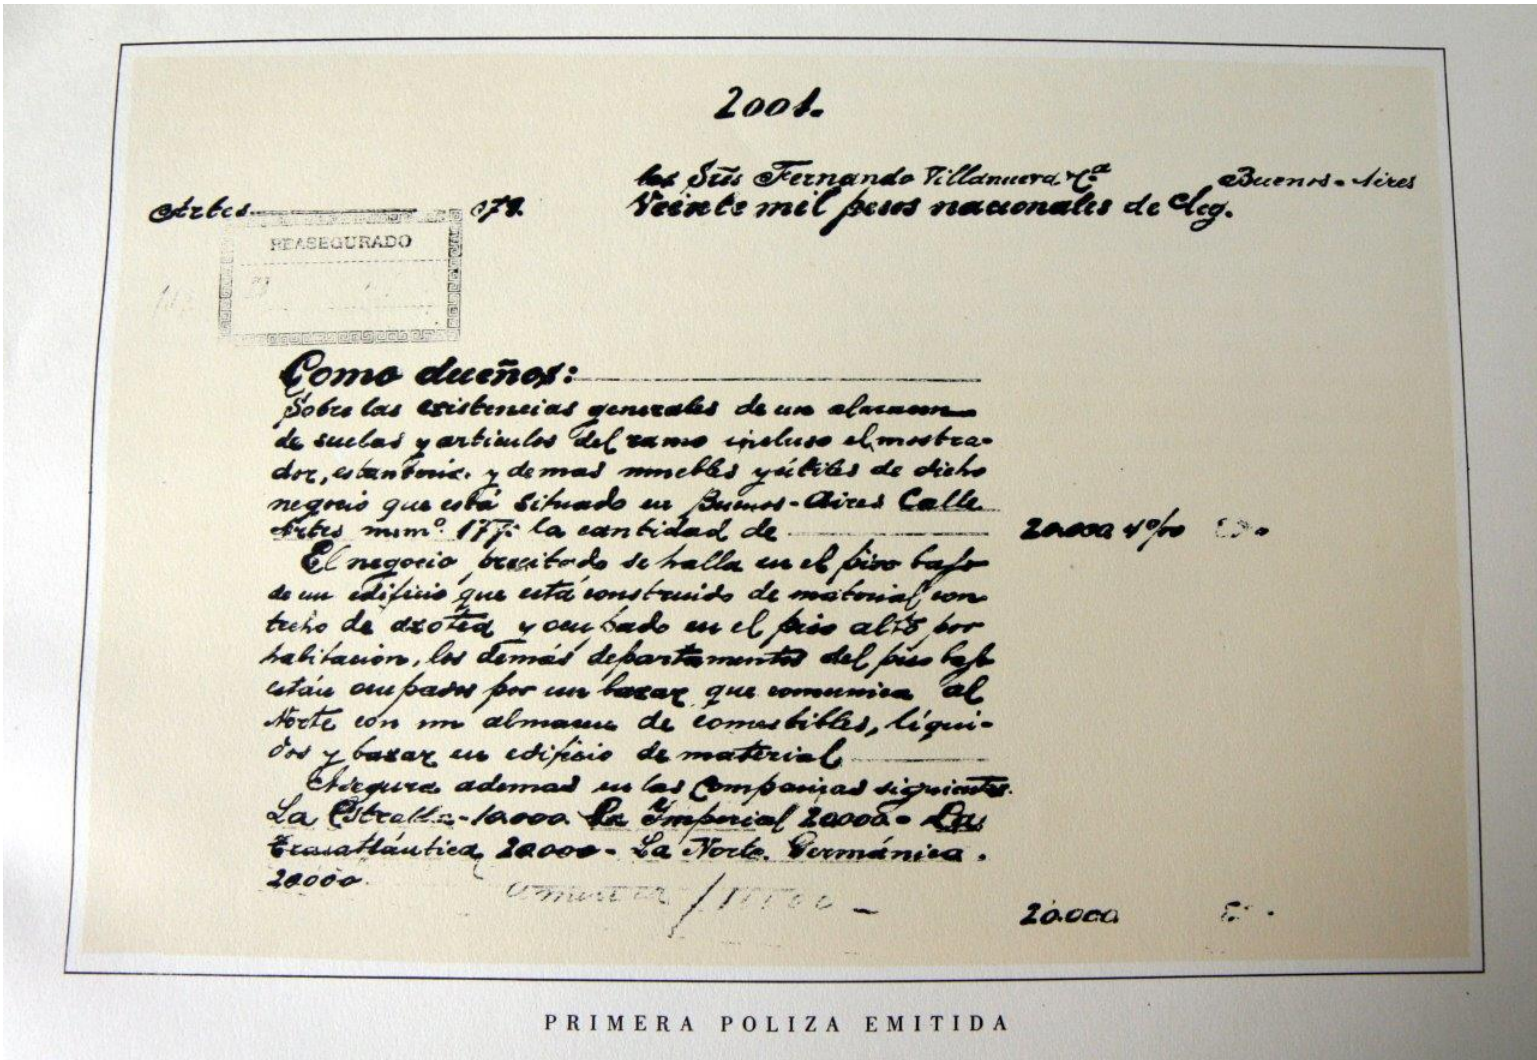 2001.
los Srẽs Fernando Villanueva y Cª Buenos-Aires
Artes 179. Veinte mil pesos nacionales de Leg.
REASEGURADO
Como dueños:
Sobre las existencias generales de un almacen
de suelas y articulos del ramo incluso el mostra-
dor, estanteria y demas muebles y útiles de dicho
negocio que está situado en Buenos-Aires Calle
Artes numº 177: la cantidad de 20.000 4º/00
El negocio precitado se halla en el piso bajo
de un edificio que está construido de material con
techo de azotea y ocupado en el piso alto por
habitacion, los demás departamentos del piso bajo
están ocupados por un bazar que comunica al
Norte con un almacen de comestibles, líqui-
dos y bazar en edificio de material
Asegura ademas en las Compañias siguientes.
La Estrella-10.000 La Imperial 20.000- La
Trasatlántica 20.000- La Norte Germánica.
20.000.
20.000
PRIMERA POLIZA EMITIDA